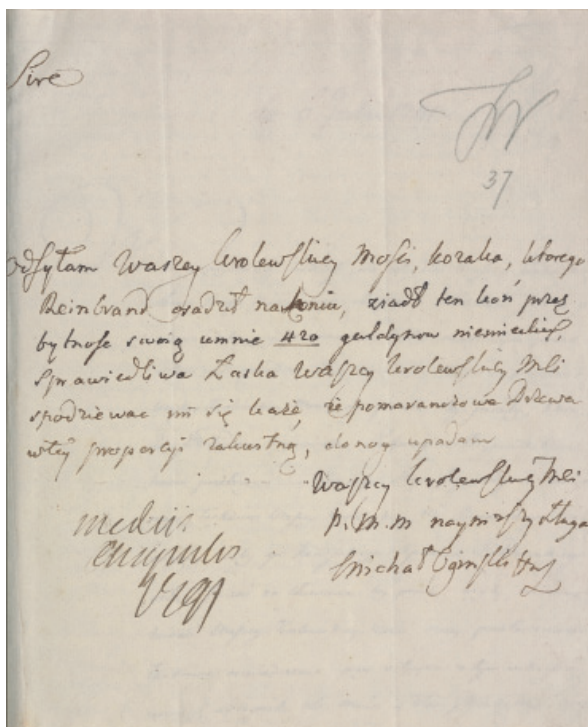 Sire
37
Odsyłam Waszey krolewskiey Mosci, kozaka, ktorego
Reinbrand osadził na koniu, ziadł ten koń przez
bytnosc swoią umnie 420 guldynow niemieckich,
Sprawiedliwa Łaska Waszey krolewskiey Mci
spodziewac mi się każe, że pomaranczowe Drzewa
wtey proporcyi zakwitną, do nog upadam
Waszey krolewskiey Mci
P. M. M naynizszy sługa
Michał Ogiński
mediis